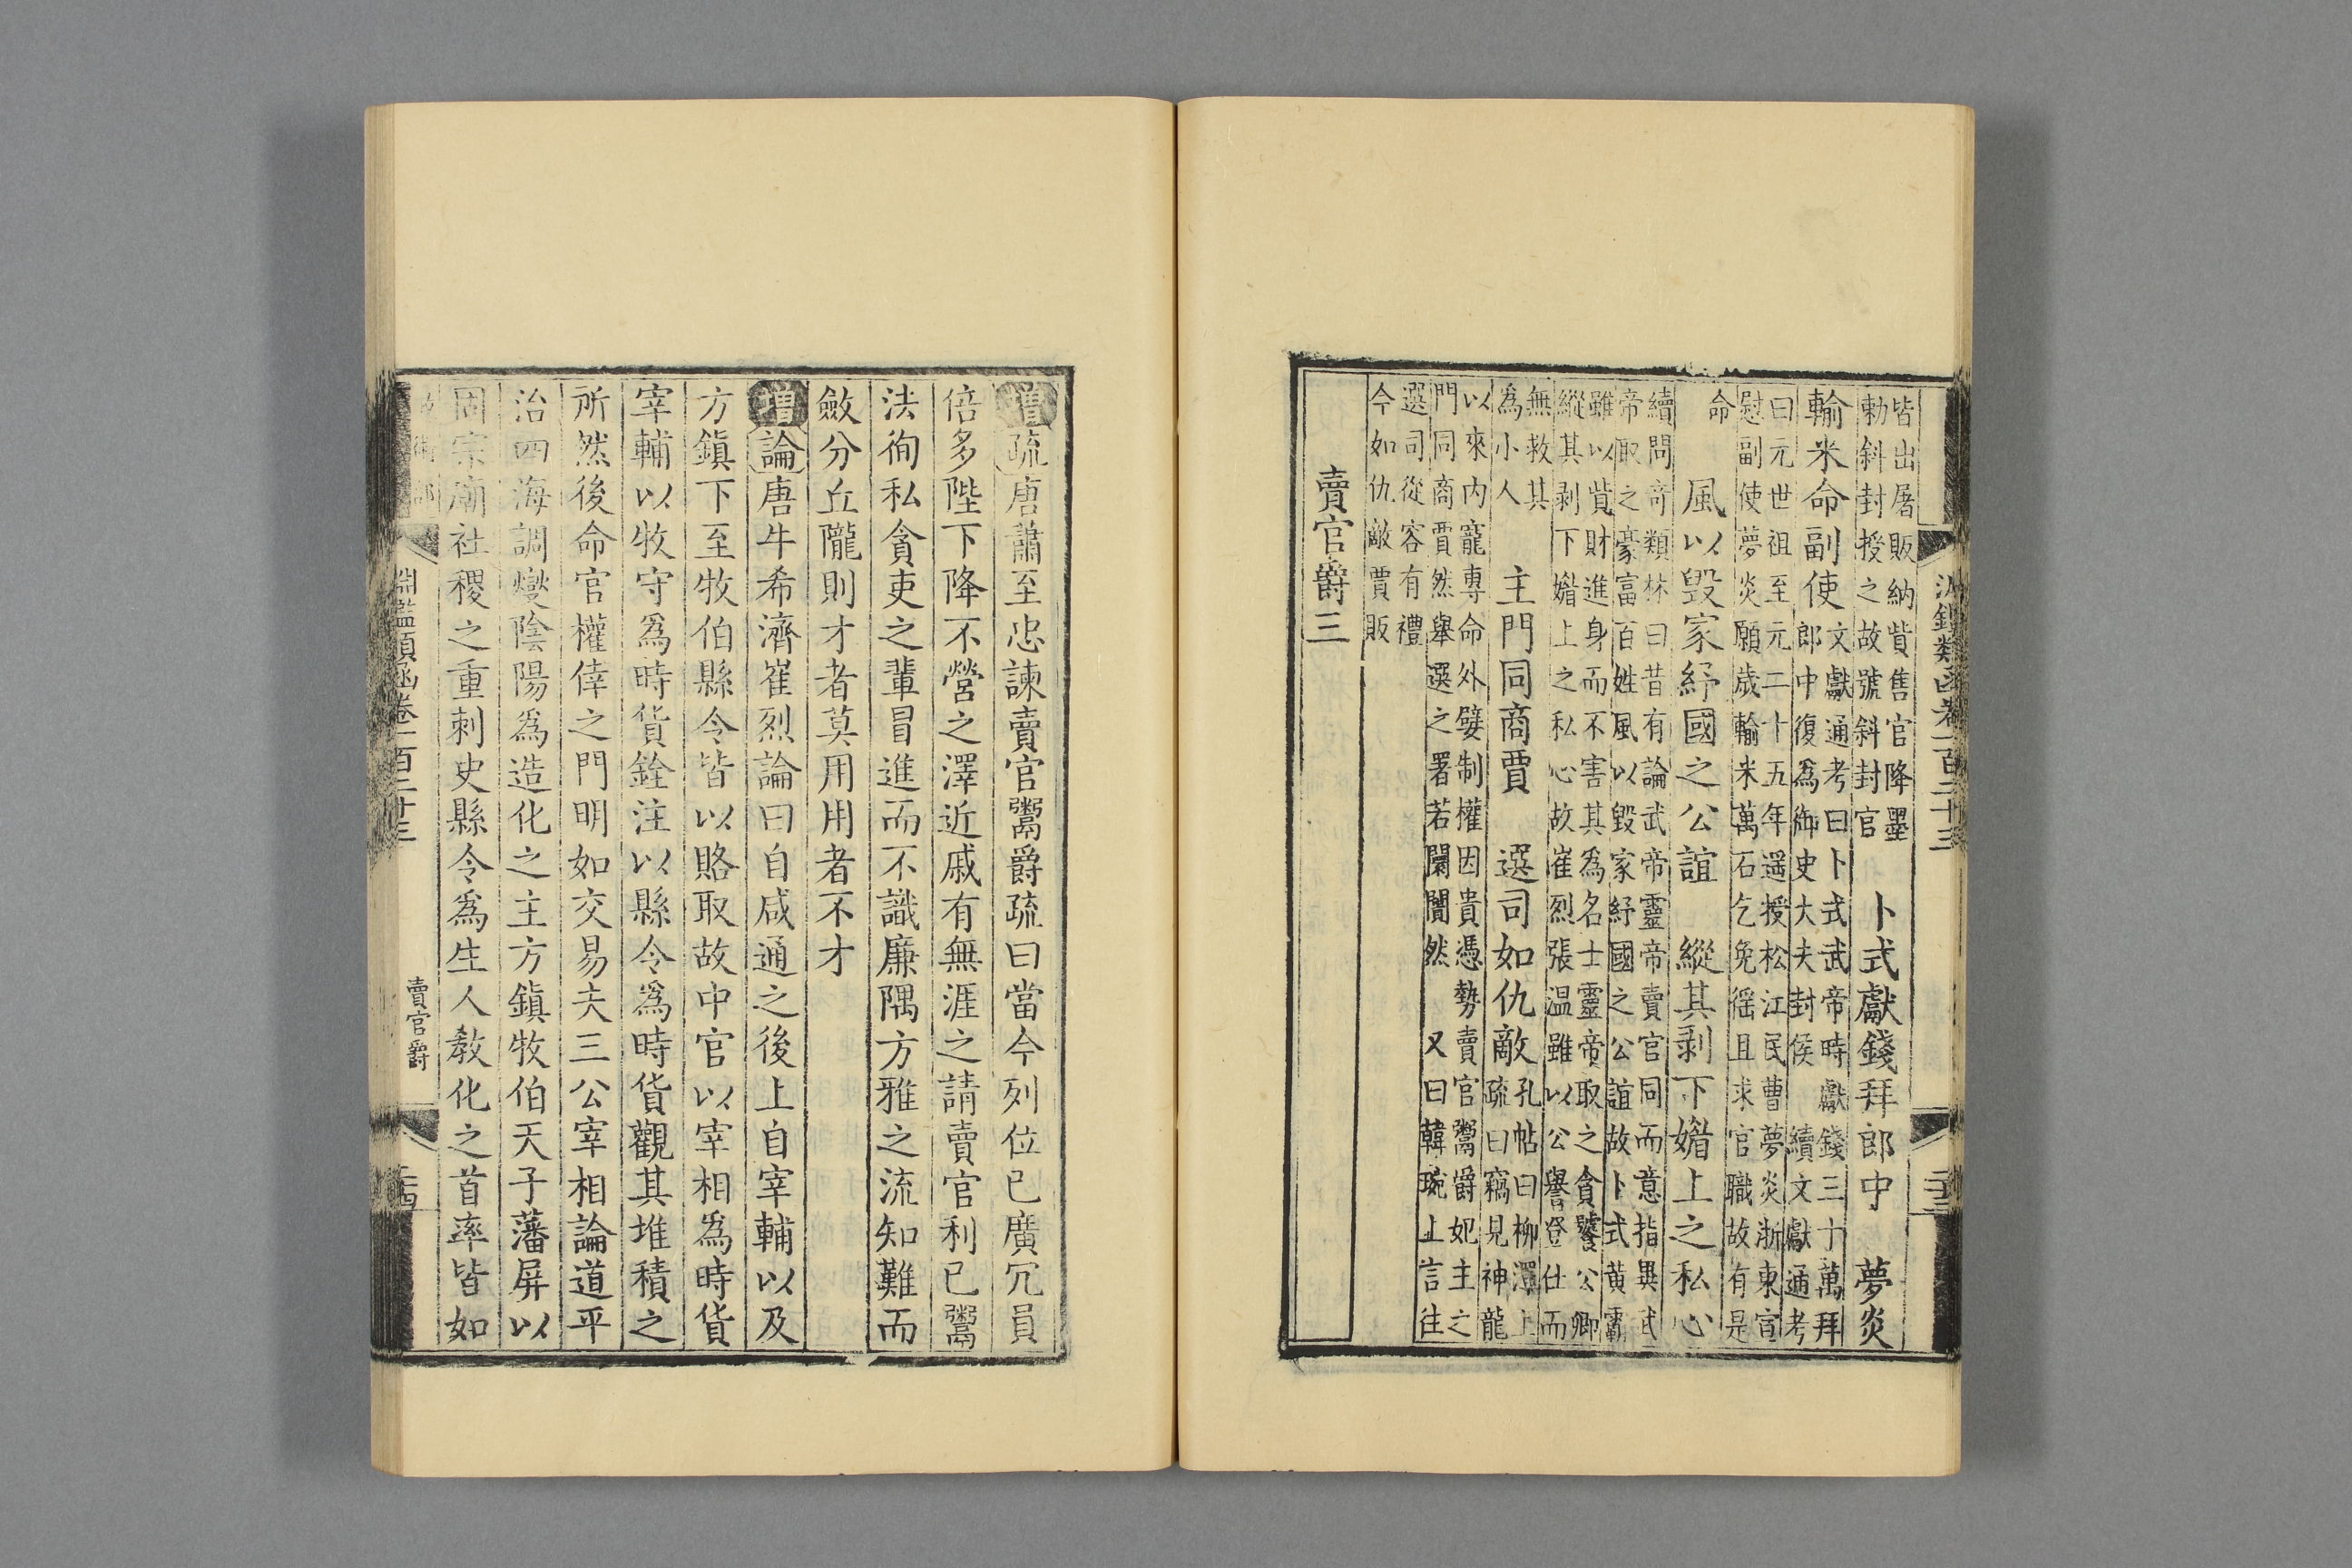 淵鑑類函卷一百二十三
皆出屠販納貲售官降墨
勅斜封授之故號斜封官
卜式獻錢拜郎中　夢炎
輸米命副使
文獻通考曰卜式武帝時獻錢三十萬拜
郎中復為御史大夫封侯　續文獻通考
曰元世祖至元二十五年遥授松江民曹夢炎浙東宣
慰副使夢炎願歳輸米萬石乞免徭且求官職故有是
命　風以毀家紓國之公誼　縱其剥下媚上之私心
續問竒類林曰昔有論武帝靈帝賣官同而意指異武
帝取之豪富百姓風以毀家紓國之公誼故卜式黄霸
雖以貲財進身而不害其為名士靈帝取之貪饕公卿
縱其剥下媚上之私心故崔烈張温雖以公譽登仕而
無救其
為小人
主門同商賈　選司如仇敵
孔帖曰柳澤上
疏曰竊見神龍
以來内寵專命外嬖制權因貴憑勢賣官鬻爵妃主之
門同商賈然舉選之署若闤闠然　又曰韓琬上言往
選司從容有禮
今如仇敵賈販
賣官爵三
增疏唐蕭至忠諫賣官鬻爵疏曰當今列位已廣冗員
倍多陛下降不營之澤近戚有無涯之請賣官利已鬻
法徇私貪吏之輩冒進而不識廉隅方雅之流知難而
斂分丘隴則才者莫用用者不才
增論唐牛希濟崔烈論曰自咸通之後上自宰輔以及
方鎭下至牧伯縣令皆以賂取故中官以宰相爲時貨
宰輔以牧守爲時貨銓注以縣令爲時貨觀其堆積之
所然後命官權倖之門明如交易夫三公宰相論道平
治四海調燮陰陽爲造化之主方鎮牧伯天子藩屏以
固宗廟社稷之重刺史縣令爲生人教化之首率皆如
淵鑑類函卷一百二十三
賣官爵